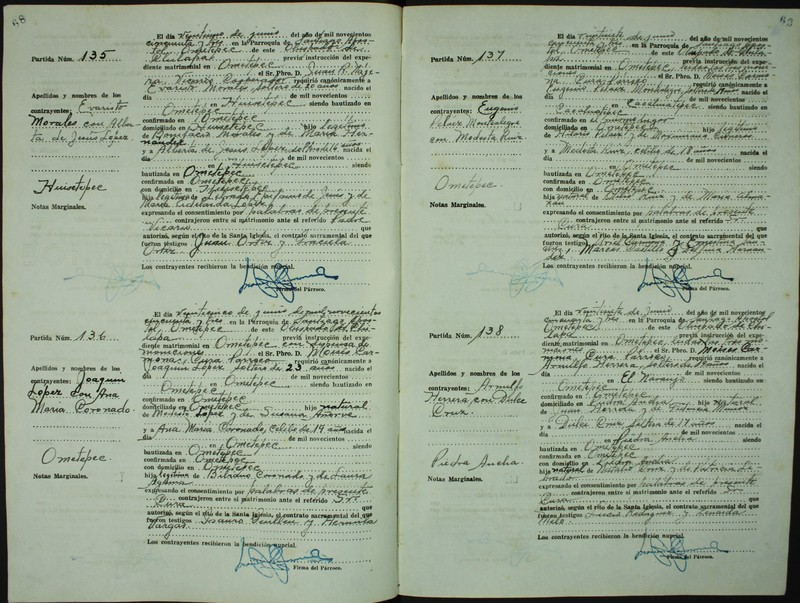 68
Partida Núm. 135
Apellidos y nombres de los
contrayentes: Evaristo
Morales con Alber-
ta de Jesús Lopez
Huixtepec
Notas Marginales.
El día Veintiuno de junio del año de mil novecientos
cincuenta y tres en la Parroquia de Santiago Após-
tol, Ometepec de este Obispado de
Chilapa previa instrucción del expe-
diente matrimonial en Ometepec
el Sr. Pbro. D. Juan R.
Vicario Cooperador requirió canónicamente a
Evaristo Morales soltero de 20 años nacido el
día de mil novecientos
en Huixtepec siendo bautizado en
Ometepec
confirmado en Ometepec
domiciliado en Huixtepec hijo legítimo
de Morales y de María Her-
nandez
y a Alberta de Jesús Lopez soltera de 14 años nacida el
día de mil novecientos
en Huixtepec siendo
bautizada en Ometepec
confirmada en Ometepec
con domicilio en Huixtepec
hija legítima de de Jesús y de
María Lopez
expresando el consentimiento por palabras de presente
contrajeron entre sí matrimonio ante el referido Padre
Vicario que
autorizó, según el rito de la Santa Iglesia, el contrato sacramental del que
fueron testigos Juan Ortiz y Graciela
Ortiz
Los contrayentes recibieron la bendición nupcial.
Firma del Párroco.
Partida Núm. 136
Apellidos y nombres de los
contrayentes: Joaquin
Lopez con Ana
Maria Coronado
Ometepec
Notas Marginales.
El día Veinticinco de junio de mil novecientos
cincuenta y tres en la Parroquia de Santiago Após-
tol, Ometepec de este Obispado de Chi-
lapa previa instrucción del expe-
diente matrimonial en Ometepec con dispensa de
moniciones el Sr. Pbro. D. Moisés Car-
mona, Cura Párroco requirió canónicamente a
Joaquin Lopez soltero de 23 años nacido el
día de mil novecientos
en Ometepec siendo bautizado en
Ometepec
confirmado en Ometepec
domiciliado en Ometepec hijo natural
de Modesto Lopez y de Susana Añorve
y a Ana Maria Coronado, célibe de 19 años nacida el
día de mil novecientos
en Ometepec siendo
bautizada en Ometepec
confirmada en Ometepec
con domicilio en Ometepec
hija legítima de Coronado y de Laura
expresando el consentimiento por palabras de presente
contrajeron entre sí matrimonio ante el referido Sr.
Cura que
autorizó, según el rito de la Santa Iglesia, el contrato sacramental del que
fueron testigos Isauro Guillen y Herminia
Vargas
Los contrayentes recibieron la bendición nupcial.
Firma del Párroco.
69
Partida Núm. 137
Apellidos y nombres de los
contrayentes: Eugenio
Velaux Montealegre
con Modesta Ruiz
Ometepec
Notas Marginales.
El día Veintisiete de junio del año de mil novecientos
cincuenta y tres en la Parroquia de Santiago Após-
tol, Ometepec de este Obispado de Chila-
pa previa instrucción del expe-
diente matrimonial en Ometepec leidas las moni-
ciones el Sr. Pbro. D. Moisés Carmo-
na Cura Párroco requirió canónicamente a
Eugenio Velaux Montealegre nacido el
día de mil novecientos
en Cacahuatepec siendo bautizado en
Cacahuatepec
confirmado en el mismo lugar
domiciliado en Ometepec hijo legítimo
de Isidoro Velaux y de
y a Modesta Ruiz, célibe de 18 años nacida el
día de mil novecientos
en Ometepec siendo
bautizada en Ometepec
confirmada en Ometepec
con domicilio en Ometepec
hija natural de Ruiz y de Maria Alma-
zan
expresando el consentimiento por palabras de presente
contrajeron entre sí matrimonio ante el referido Sr.
Cura que
autorizó, según el rito de la Santa Iglesia, el contrato sacramental del que
fueron testigos y Ernestina
Marcos Castillo y Delfina Hernan-
dez
Los contrayentes recibieron la bendición nupcial.
Firma del Párroco.
Partida Núm. 138
Apellidos y nombres de los
contrayentes: Arnulfo
Herrera, con Dulce
Cruz.
Piedra Ancha
Notas Marginales.
El día Veintisiete de Junio del año de mil novecientos
cincuenta y tres en la Parroquia de Santiago Apostol
Ometepec de este Obispado de Chi-
lapa previa instrucción del expe-
diente matrimonial en Ometepec, leidas las tres mo-
niciones el Sr. Pbro. D. Moisés Car-
mona, Cura Párroco requirió canónicamente a
Arnulfo Herrera, soltero de años nacido el
día de mil novecientos
en El Naranjo siendo bautizado en
Ometepec
confirmado en Ometepec
domiciliado en Piedra Ancha hijo natural
de Juan Herrera y de Federica Muñoz
y a Dulce Cruz soltera de 17 años nacida el
día de mil novecientos
en Piedra Ancha siendo
bautizada en Ometepec
confirmada en Ometepec
con domicilio en Piedra Ancha
hija natural de Cruz y de
expresando el consentimiento por palabras de presente
contrajeron entre sí matrimonio ante el referido Sr.
Cura que
autorizó, según el rito de la Santa Iglesia, el contrato sacramental del que
fueron testigos Rodriguez y Leonarda
Melo
Los contrayentes recibieron la bendición nupcial.
Firma del Párroco.